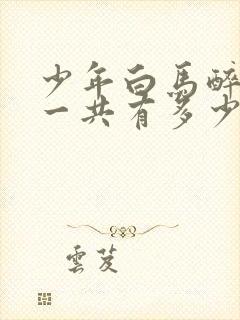 少年白馬醉
一共有多少
雲芨